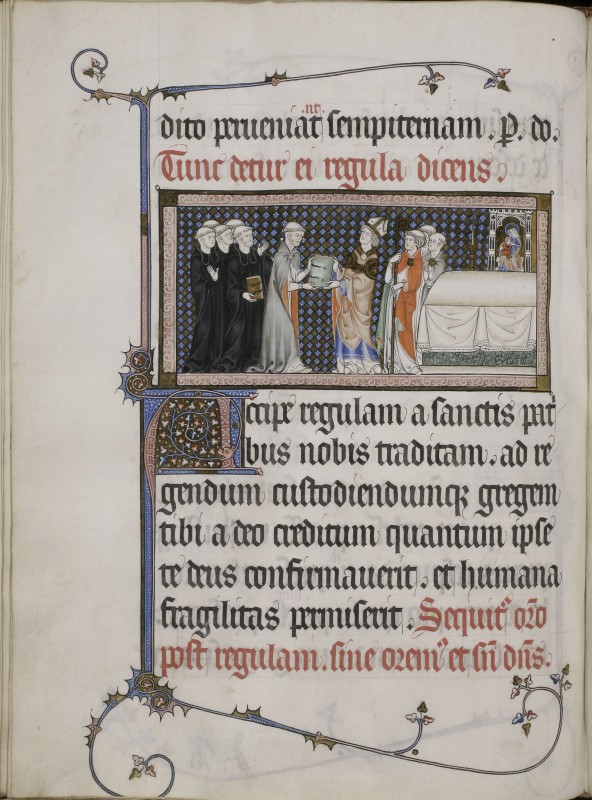 dito perueniat sempiternam. P. do.
nt
Tunc detur ei regula dicens.
Accipe regulam a sanctis pat
bus nobis traditam. ad re
gendum custodiendumq; gregem
tibi a deo creditum quantum ipse
te deus confirmauerit. et humana
fragilitas permiserit. Sequit' oro
post regulam. sine orem' et sn dns.